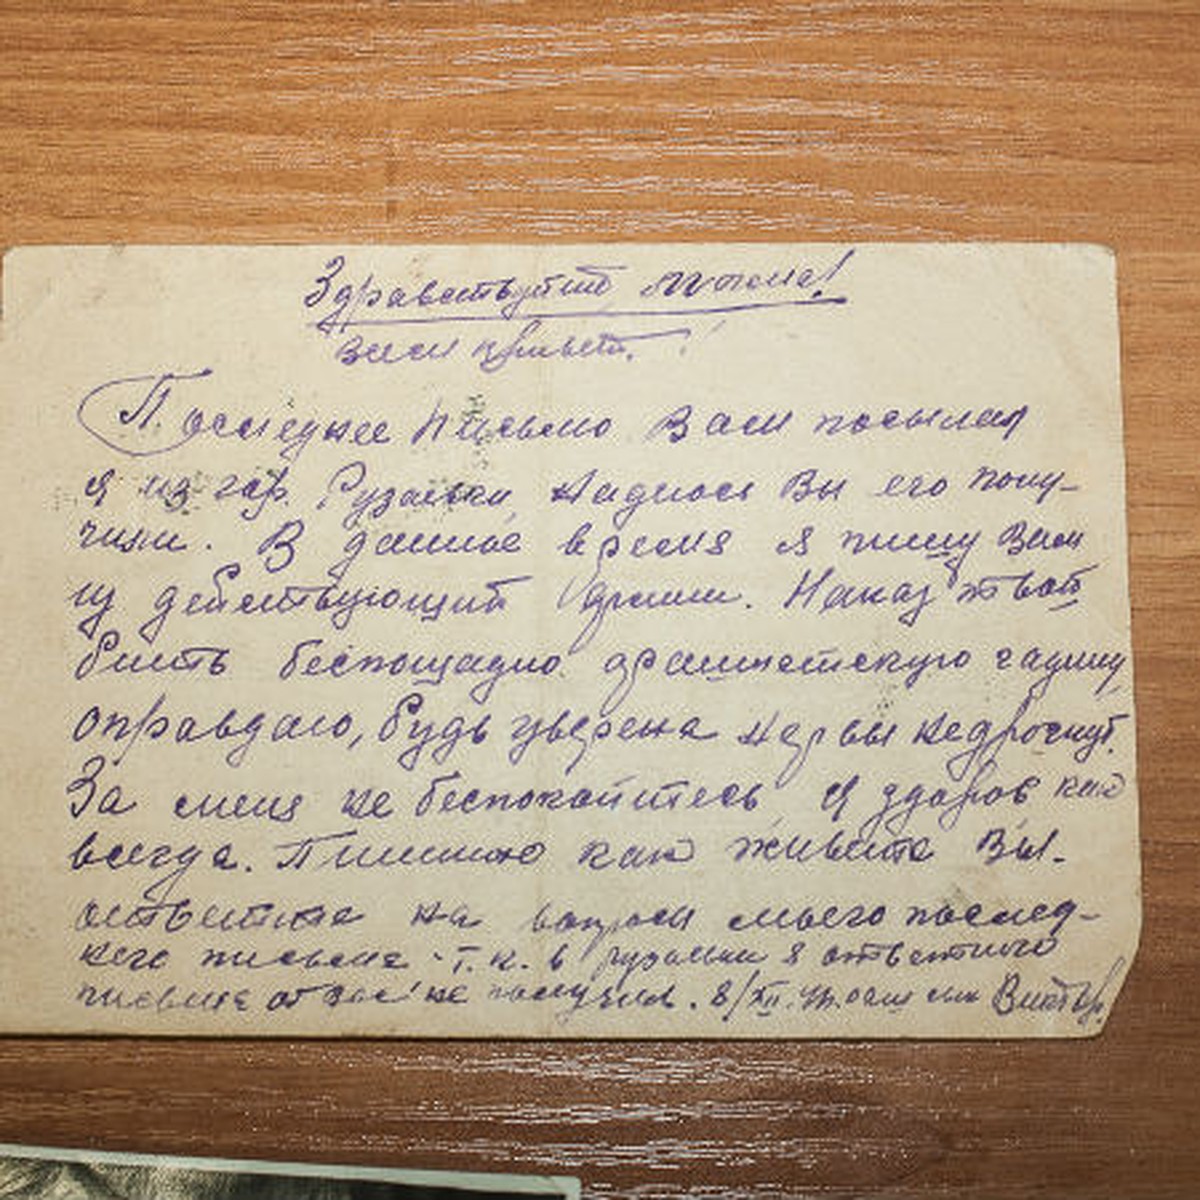 Здравствуйте мама!
Всем привет!
Последнее письмо Вам посылал
я из гор. Рузаевки, надеюсь Вы его полу-
чили. В данное время я пишу Вам
из действующий армии. Наказ твой
бить беспощадно фашистскую гадину
оправдаю, будь уверена нервы недрогнут.
За меня не беспокойтесь я здоров как
всегда. Пишите как живете Вы.
ответьте на вопросы моего послед-
него письма. т.к. в рузаевки я ответного
письма от вас не получил. 8/XII. Ваш сын Виктор.